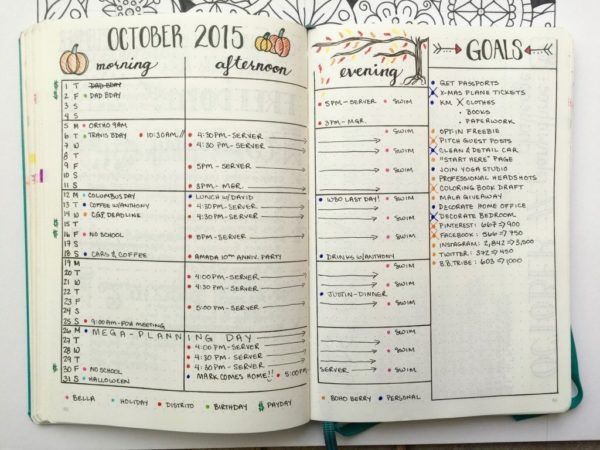 OCTOBER 2015
GOALS
morning afternoon evening
1 T DAD BDAY
$ 2 F DAD BDAY 5PM-SERVER SWIM
3 S
4 S 3PM-MGR.
5 M ORTHO 9AM
6 T TRAVIS BDAY 10:30AM 4:30PM-SERVER SWIM
7 W 4:30 PM-SERVER
8 T
9 F 5PM-SERVER SWIM
10 S
11 S 3PM-MGR.
12 M COLUMBUS DAY LUNCH W/DAVID WBD LAST DAY! SWIM
13 T COFFEE W/ANTHONY 4:30PM-SERVER
14 W C&P DEADLINE 4:30PM-SERVER SWIM
15 T
$ 16 F NO SCHOOL 5PM-SERVER SWIM
17 S
18 S CARS & COFFEE AMADA 10TH ANNIV. PARTY DRINKS W/ANTHONY
19 M SWIM
20 T 4:00PM-SERVER
21 W 4:30PM-SERVER SWIM
22 T JUSTIN-DINNER
23 F 5:00PM-SERVER SWIM
24 S
25 S 9:00AM-POW MEETING
26 M MEGA-PLANNING DAY SWIM
27 T 4:00PM-SERVER
28 W 4:30PM-SERVER SWIM
29 T 4:30PM-SERVER
$ 30 F NO SCHOOL MARK COMES HOME!! 5:00PM SERVER SWIM
31 S HALLOWEEN
GET PASSPORTS
X-MAS PLANE TICKETS
KM X CLOTHES
BOOKS
PAPERWORK
OPT-IN FREEBIE
PITCH GUEST POSTS
CLEAN & DETAIL CAR
"START HERE" PAGE
JOIN YOGA STUDIO
PROFESSIONAL HEADSHOTS
COLORING BOOK DRAFT
MALA GIVEAWAY
DECORATE HOME OFFICE
DECORATE BEDROOM
PINTEREST: 667 → 900
FACEBOOK: 566 → 750
INSTAGRAM: 2,842 → 3,500
TWITTER: 372 → 450
B.B.TRIBE: 603 → 1,000
BELLA HOLIDAY DISTRITO BIRTHDAY $ PAYDAY BOHO BERRY PERSONAL